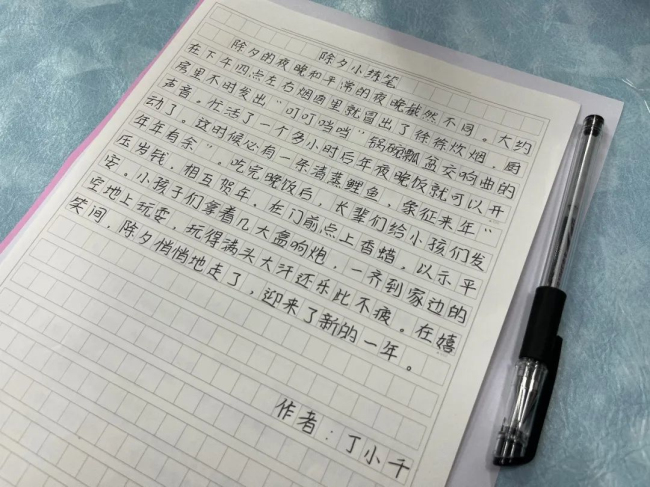 除夕小练笔
除夕的夜晚和平常的夜晚截然不同。大约
在下午四点左右烟囱里就冒出了徐徐炊烟，厨
房里不时发出“叮叮当当”锅碗瓢盆交响曲的
声音。忙活了一个多小时后年夜晚饭就可以开
动了。这时候必有一条清蒸鲤鱼，象征来年“
年年有余”。吃完晚饭后，长辈们给小孩们发
压岁钱，相互贺年，在门前点上香蜡，以示平
安。小孩子们拿着几大盒响炮，一齐到家边的
空地上玩耍，玩得满头大汗还乐此不疲。在嬉
笑间，除夕悄悄地走了，迎来了新的一年。
作者：丁小千